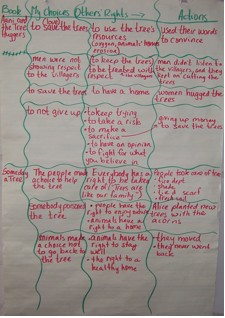 Book My Choices Others' Rights → Actions
and the Tree Huggers
(love)
to save the trees
to use the tree's resources
(oxygen, animals' homes,
used their words to convince
men were not showing respect to the villagers
to keep the trees
to be treated with respect
men didn't listen to the villagers, and they kept on cutting the trees
to save the trees
to have a home
women hugged the trees
to not give up
to keep trying
to take a risk
to make a sacrifice
to have an opinion
to fight for what you believe in
giving up money to save the trees
Someday a Tree
The people made a choice to help the tree
Everybody has a right to be taken care of (Trees are like our family)
People took care of tree
fire dept
shade
tied scarf
fresh soil
Somebody poisoned the tree.
people have the right to enjoy nature
animals have a right to a home
Alice planted new trees with the acorns
animals made a choice not to go back to the tree
animals have the right to stay well
the right to a healthy home
they moved
they never went back